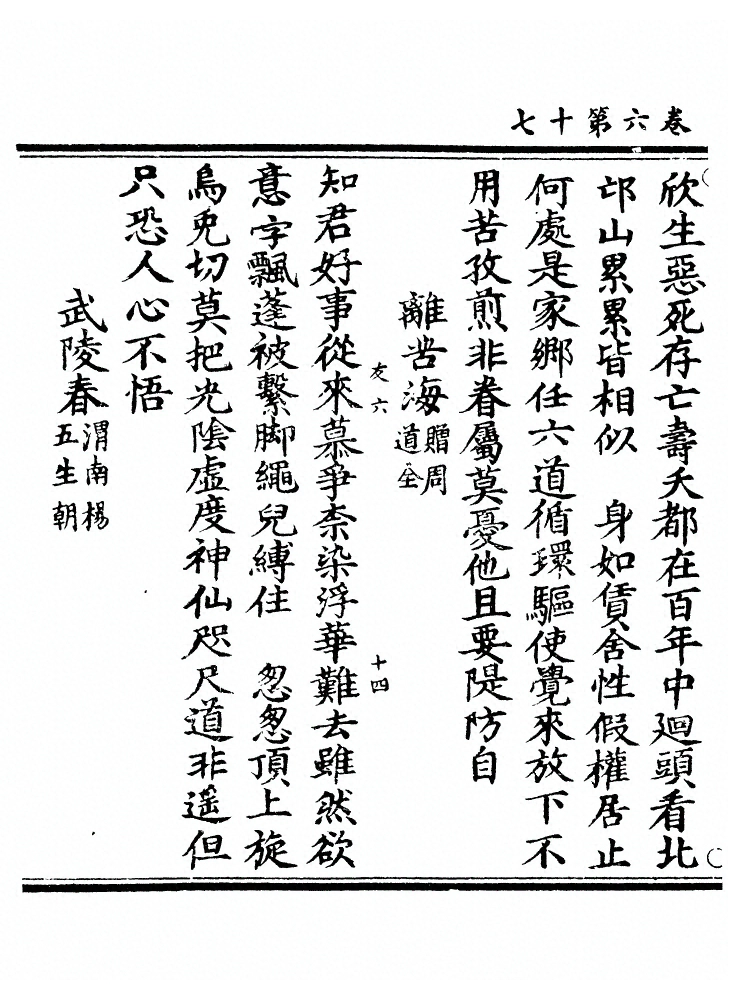 卷六第十七
欣生惡死存亡壽夭都在百年中廻頭看北
邙山累累皆相似　身如賃舍性假權居止
何處是家鄉任六道循環驅使覺來放下不
用苦孜煎非眷屬莫憂他且要隄防自
離苦海贈周道全
友六　十四
知君好事從來慕爭柰染浮華難去雖然欲
意字飄蓬被繫脚繩兒縛住　怱怱頂上旋
烏兔切莫把光陰虛度神仙咫尺道非遥但
只恐人心不悟
武陵春渭南楊五生朝